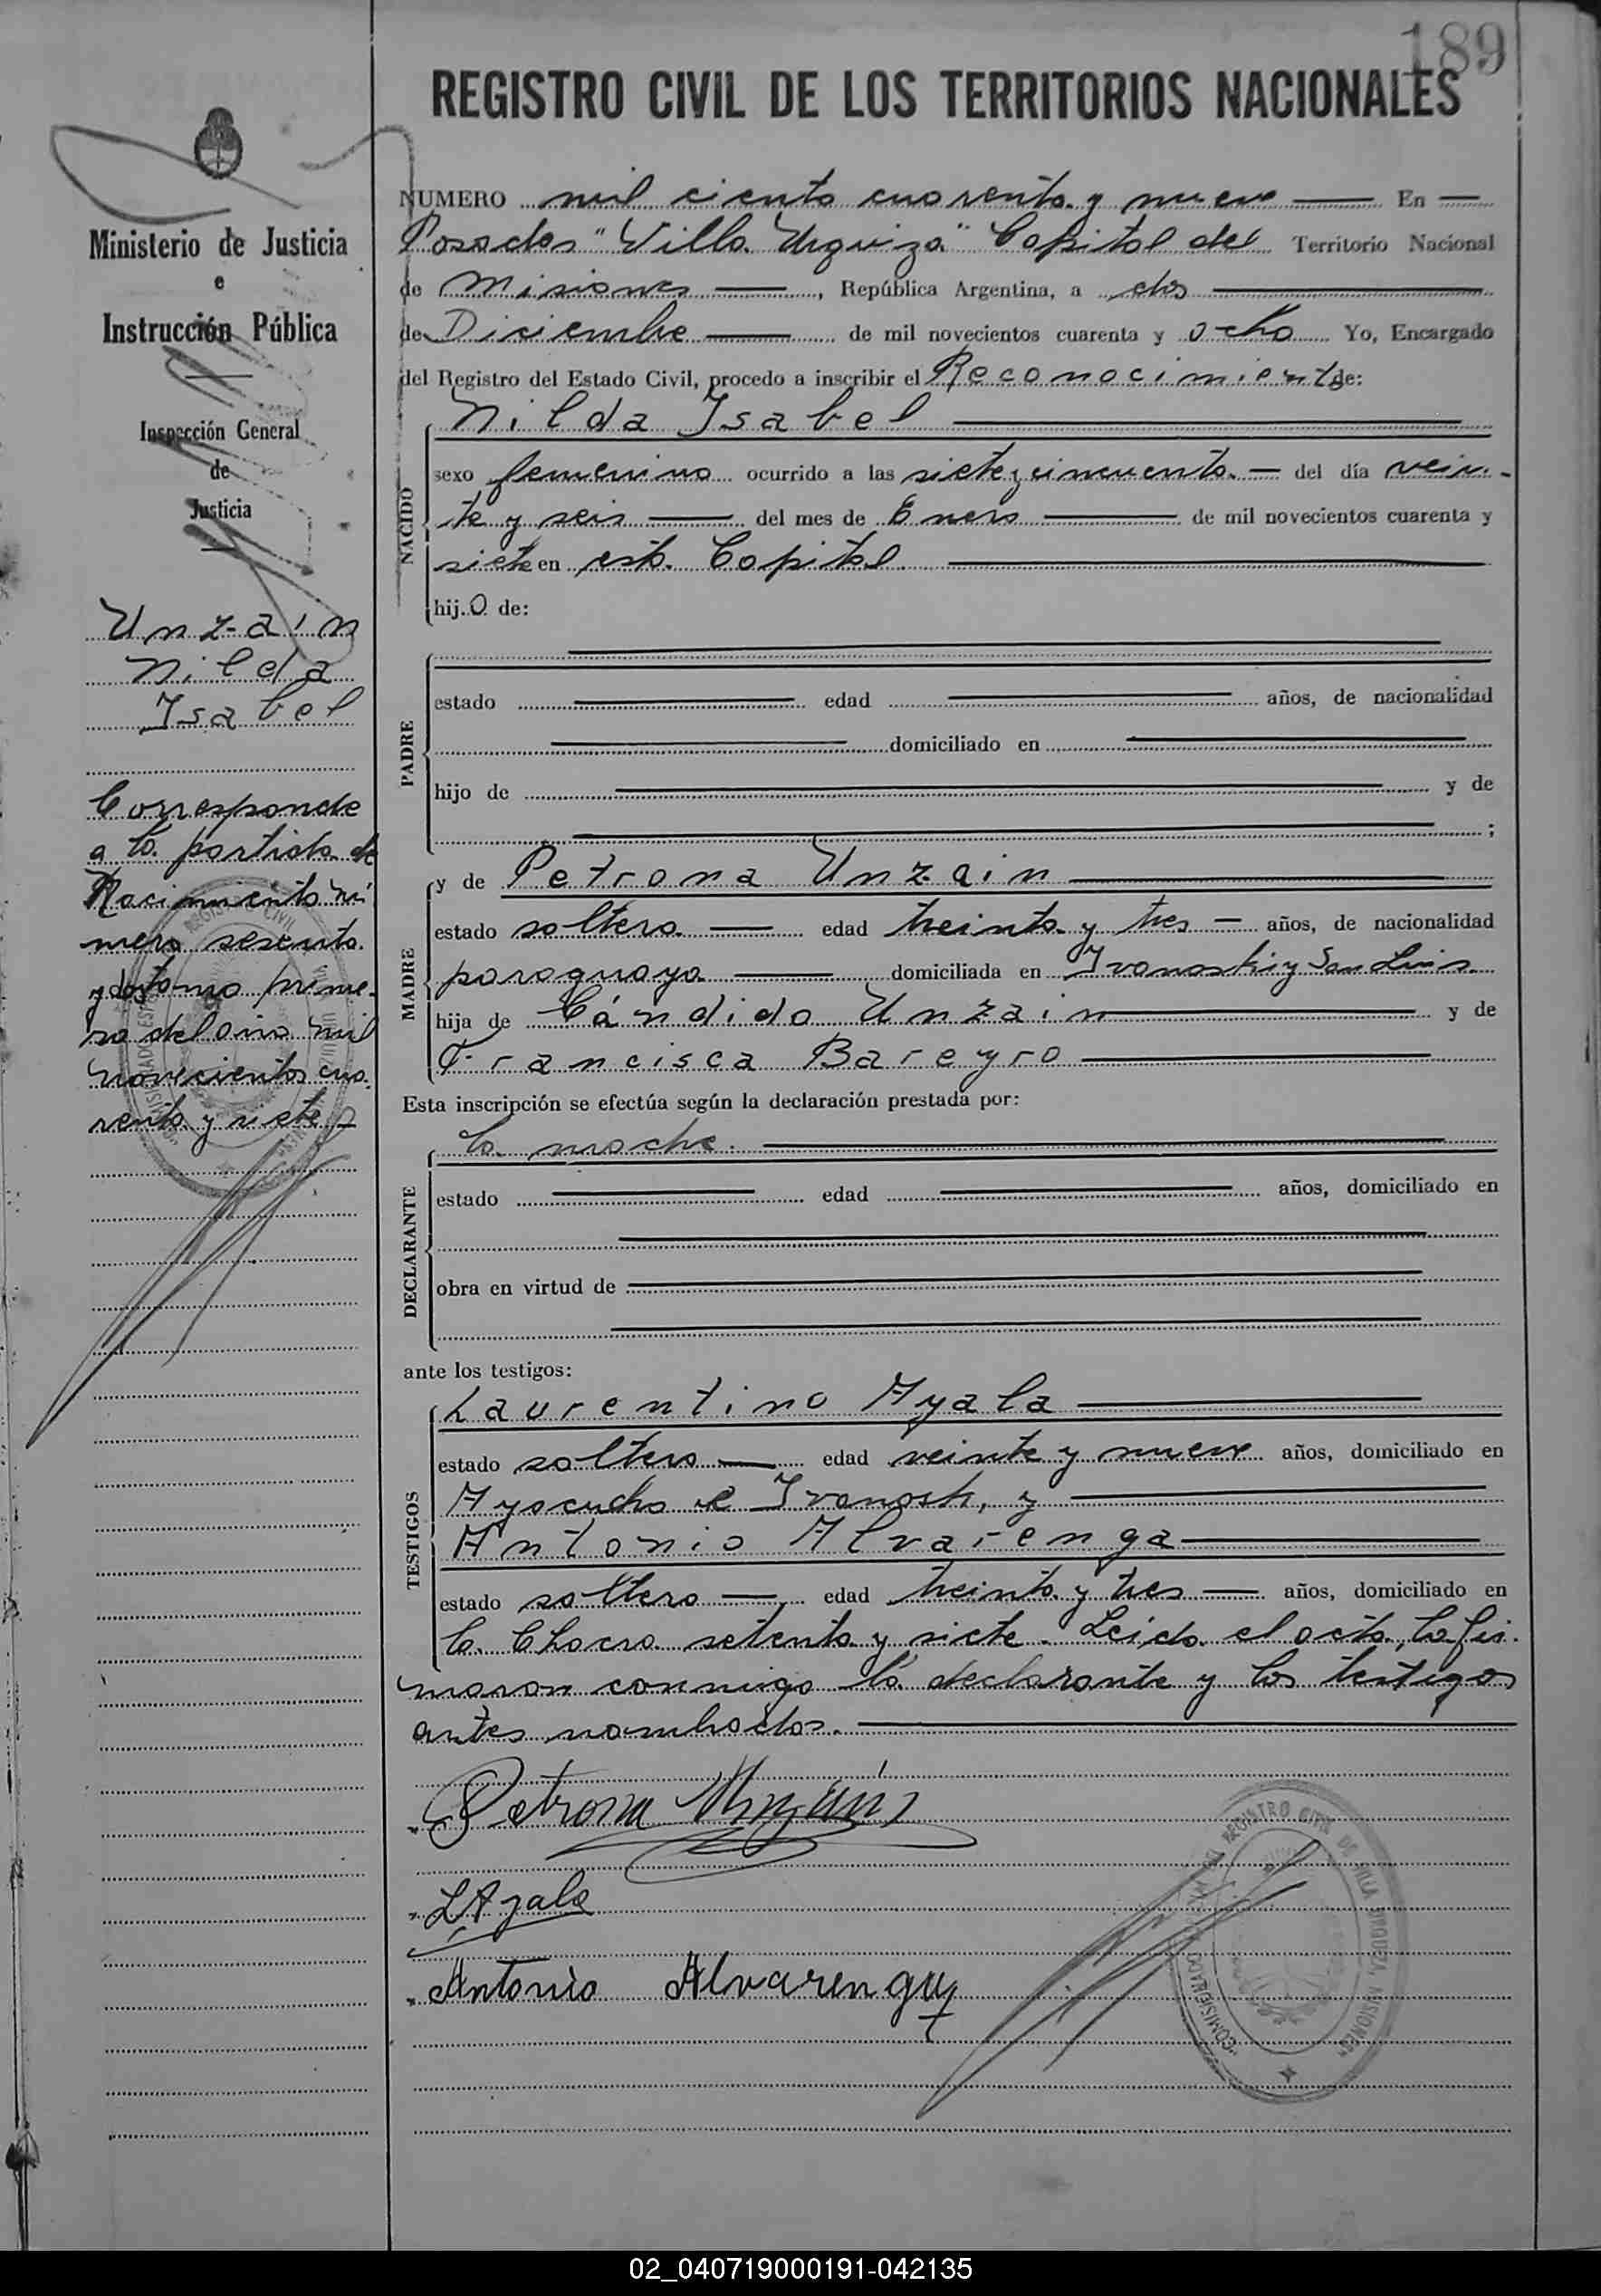 189
REGISTRO CIVIL DE LOS TERRITORIOS NACIONALES
Ministerio de Justicia
e
Instrucción Pública
Inspección General
de
Justicia
Unzain
Nilda
Isabel
Corresponde
a la partida de
Nacimiento nú
mero sesenta
y dos tomo prime-
ro del año mil
novecientos cua-
renta y siete
NUMERO mil ciento cuarenta y nueve En
Posadas "Villa Urquiza" Capital del Territorio Nacional
de Misiones, República Argentina, a dos
de Diciembre de mil novecientos cuarenta y ocho Yo, Encargado
del Registro del Estado Civil, procedo a inscribir el Reconocimiento de:
NACIDO
Nilda Isabel
sexo femenino ocurrido a las siete y cincuenta del día vein-
te y seis del mes de Enero de mil novecientos cuarenta y
siete en esta Capital
hij.O de:
PADRE
estado edad años, de nacionalidad
domiciliado en
hijo de y de
;
MADRE
y de Petrona Unzain
estado soltera edad treinta y tres años, de nacionalidad
paraguaya domiciliada en Ivanoski y San Luis
hija de Cándido Unzain y de
Francisca Bareyro
Esta inscripción se efectúa según la declaración prestada por:
DECLARANTE
la madre.
estado edad años, domiciliado en
obra en virtud de
ante los testigos:
TESTIGOS
Laurentino Ayala
estado soltero edad veinte y nueve años, domiciliado en
Ayacucho e y
Antonio Alvarenga
estado soltero edad treinta y tres años, domiciliado en
la Chacra setenta y siete. Leida el acta, la fir-
maron conmigo la declarante y los testigos
antes nombrados.
Petrona Unzain
L Ayala
Antonio Alvarenga
REGISTRO CIVIL DE VILLA URQUIZA MISIONES
COMISIONADO
02_040719000191-042135